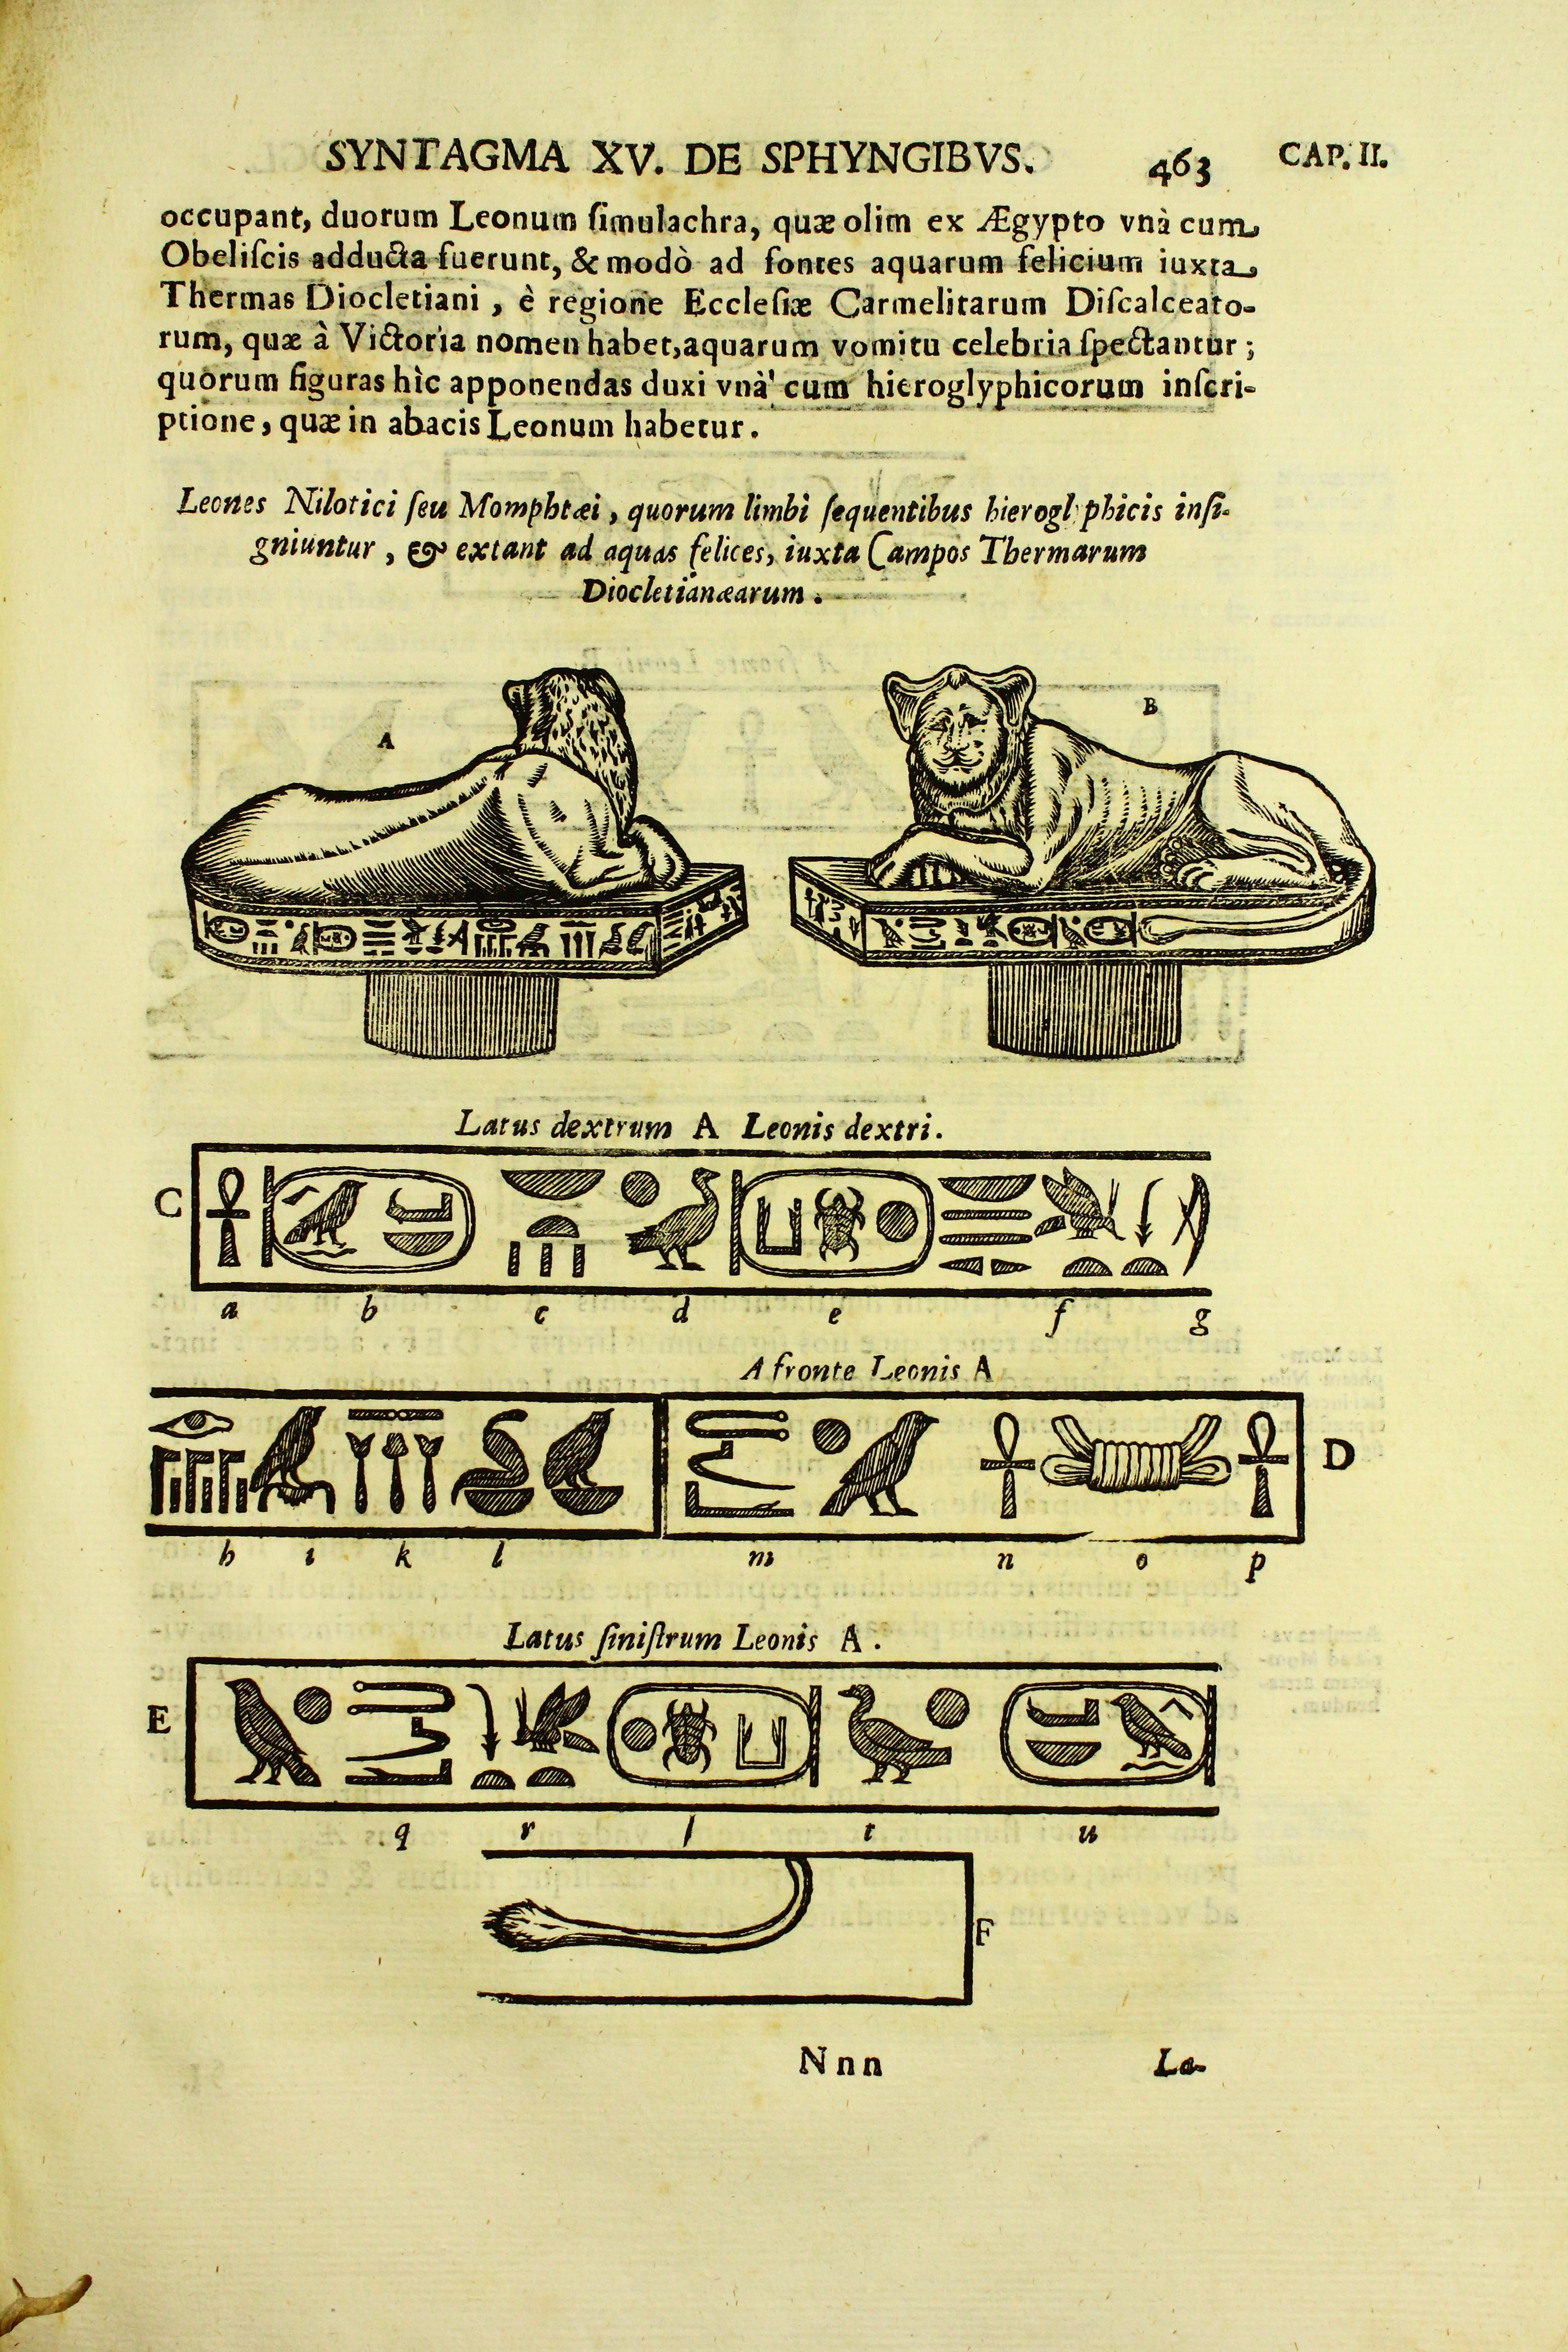 SYNTAGMA XV. DE SPHYNGIBVS. 463 CAP. II.
occupant, duorum Leonum ſimulachra, quæ olim ex Ægypto vnà cum
Obeliſcis adducta fuerunt, & modò ad fontes aquarum felicium iuxta
Thermas Diocletiani, è regione Eccleſiæ Carmelitarum Diſcalceato-
rum, quæ à Victoria nomen habet, aquarum vomitu celebria ſpectantur;
quorum figuras hìc apponendas duxi vnà cum hieroglyphicorum inſcri-
ptione, quæ in abacis Leonum habetur.
Leones Nilotici ſeu Momphtæi, quorum limbi ſequentibus hieroglyphicis inſi-
gniuntur, & extant ad aquas felices, iuxta Campos Thermarum
Diocletianæarum.
A B
Latus dextrum A Leonis dextri.
C
a b c d e f g
A fronte Leonis A
D
h i k l m n o p
Latus ſiniſtrum Leonis A.
E
q r ſ t u
F
Nnn La-